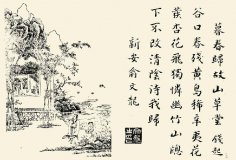 暮春歸故山草堂 錢起
谷口春殘黃鳥稀辛夷花
盡杏花飛獨憐幽竹山窻
下不改清陰待我歸
新安俞文龍